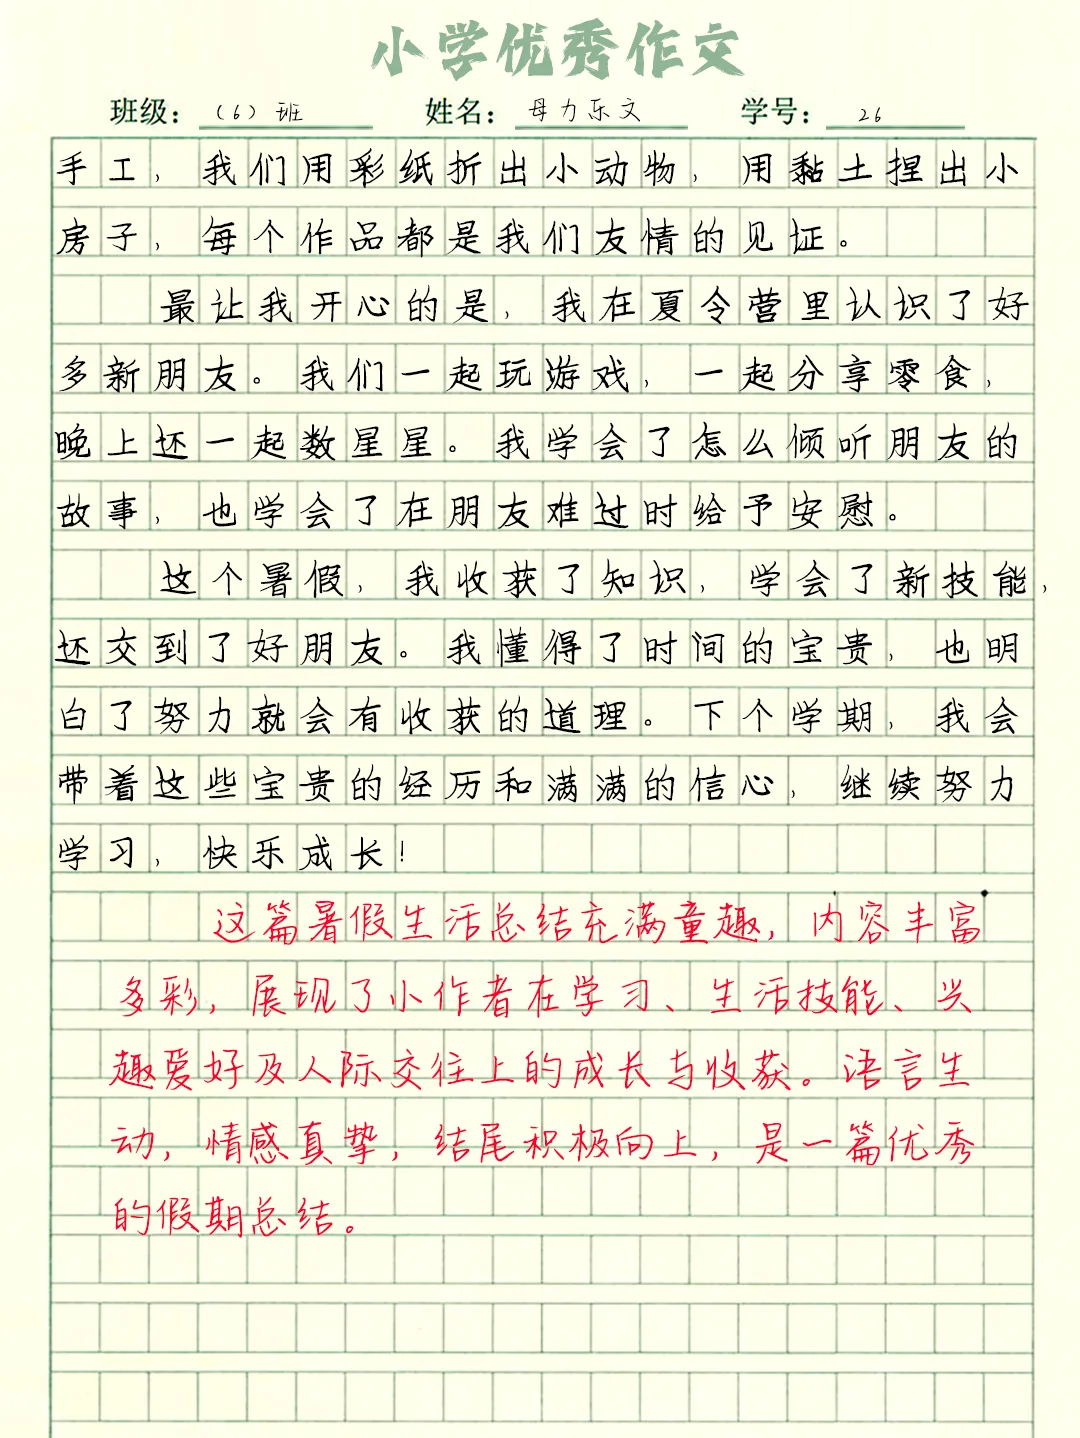 小学优秀作文
班级：（6）班 姓名：母力乐文 学号：26
手工，我们用彩纸折出小动物，用黏土捏出小
房子，每个作品都是我们友情的见证。
最让我开心的是，我在夏令营里认识了好
多新朋友。我们一起玩游戏，一起分享零食，
晚上还一起数星星。我学会了怎么倾听朋友的
故事，也学会了在朋友难过时给予安慰。
这个暑假，我收获了知识，学会了新技能，
还交到了好朋友。我懂得了时间的宝贵，也明
白了努力就会有收获的道理。下个学期，我会
带着这些宝贵的经历和满满的信心，继续努力
学习，快乐成长！
这篇暑假生活总结充满童趣，内容丰富
多彩，展现了小作者在学习、生活技能、兴
趣爱好及人际交往上的成长与收获。语言生
动，情感真挚，结尾积极向上，是一篇优秀
的假期总结。